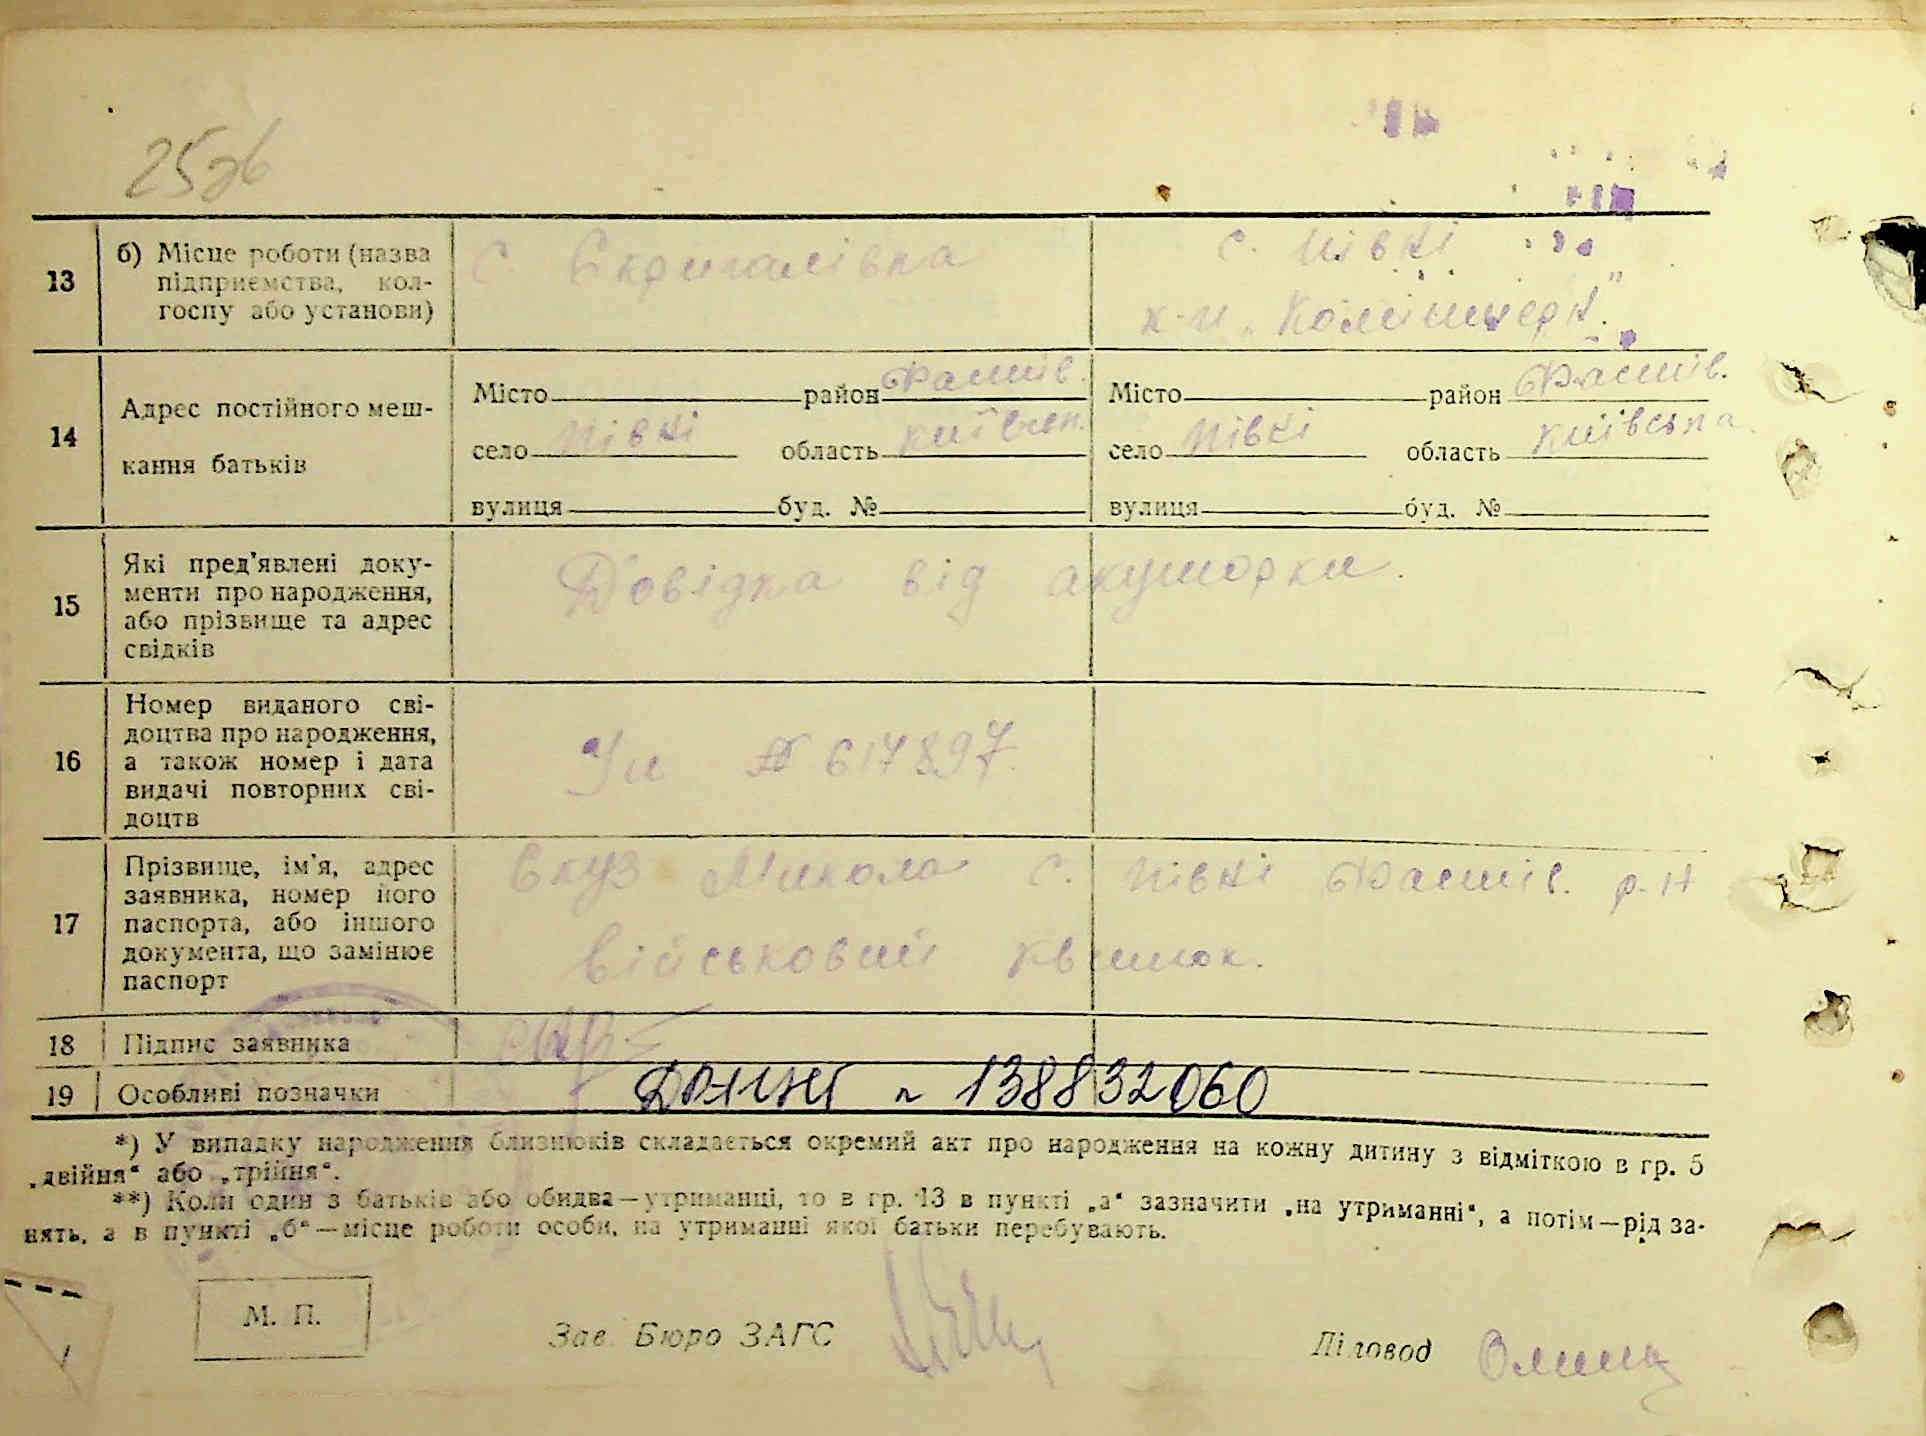 25зв
13
б) Місце роботи (назва
підприємства, кол-
госпу або установи)
с Скригалівка
с. Півні
к-п „Комінтерн".
14
Адрес постійного меш-
кання батьків
Місто район Фастів.
село Півні область київськ.
вулиця буд. №
Місто район Фастів.
село Півні область київська
вулиця буд. №
15
Які пред'явлені доку-
менти про народження,
або прізвище та адрес
свідків
Довідка від акушорки.
16
Номер виданого сві-
доцтва про народження,
а також номер і дата
видачі повторних сві-
доцтв
№ 617897.
17
Прізвище, ім'я, адрес
заявника, номер його
паспорта, або іншого
документа, що замінює
паспорт
Микола с. Півні Фастів. р-н
військовий квиток.
18
Підпис заявника
19
Особливі позначки
138832060
*) У випадку народження близнюків складається окремий акт про народження на кожну дитину з відміткою в гр. 5
„двійня“ або „трійня“.
**) Коли один з батьків або обидва—утриманці, то в гр. 13 в пункті „а“ зазначити „на утриманні“, а потім—рід за-
нять, а в пункті „б“—місце роботи особи, на утриманні якої батьки перебувають.
М. П.
Зав. Бюро ЗАГС
Діловод